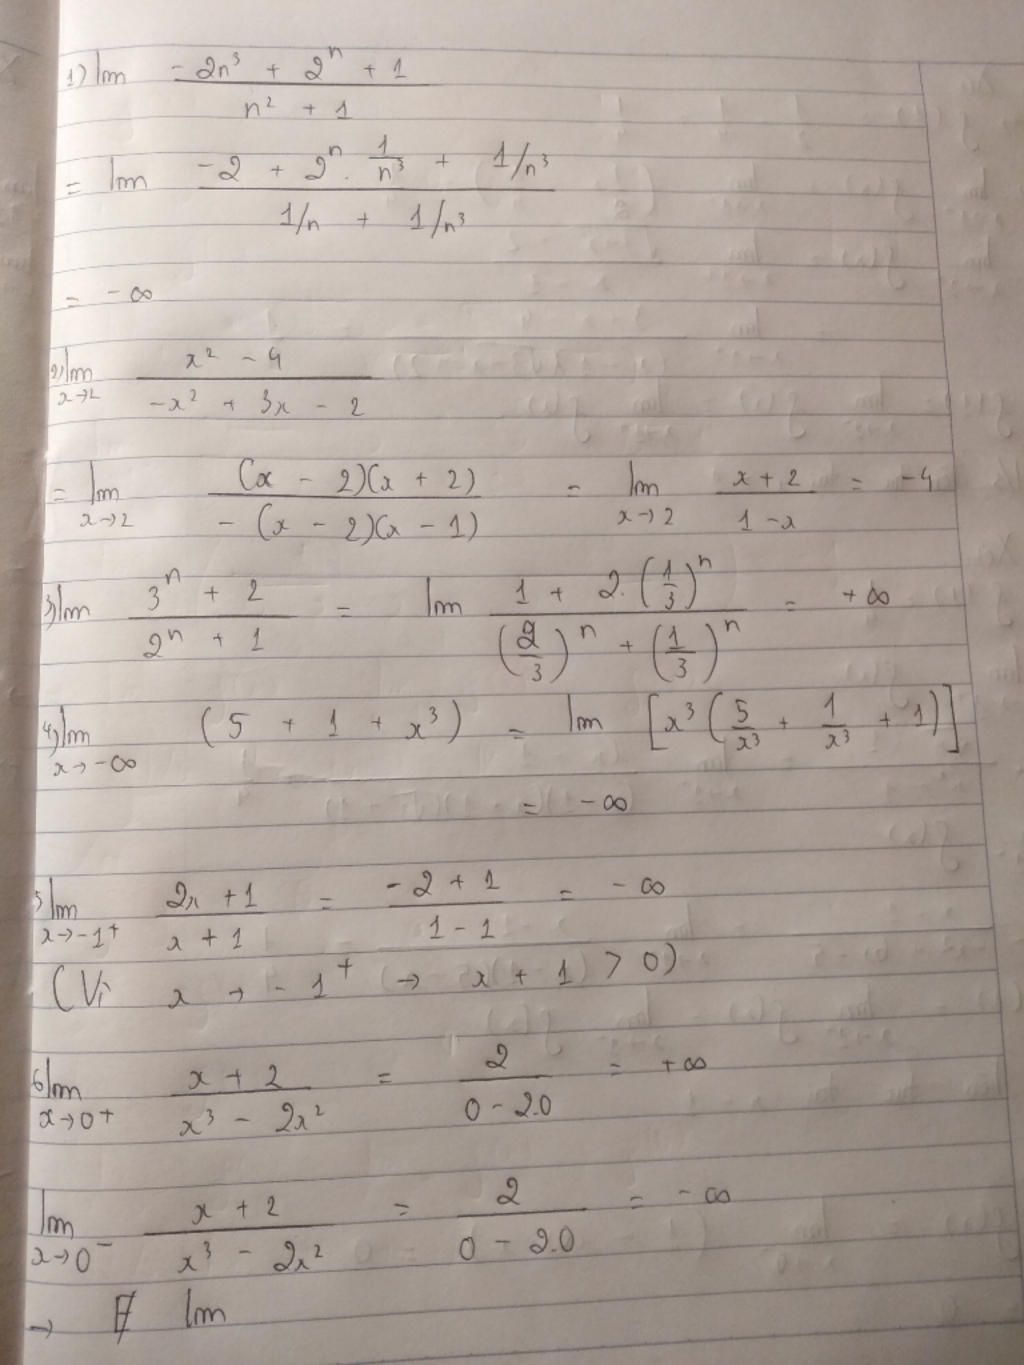 1) lim (-2n³ + 2ⁿ + 1)/(n² + 1)
= lim (-2 + 2ⁿ . 1/n³ + 1/n³)/(1/n + 1/n³)
= -∞
2) lim x→2 (x² - 4)/(-x² + 3x - 2)
= lim x→2 ((x - 2)(x + 2))/(-(x - 2)(x - 1)) = lim x→2 (x + 2)/(1 - x) = -4
3) lim (3ⁿ + 2)/(2ⁿ + 1) = lim (1 + 2.(1/3)ⁿ)/((2/3)ⁿ + (1/3)ⁿ) = +∞
4) lim x→-∞ (5 + 1 + x³) = lim [x³(5/x³ + 1/x³ + 1)]
= -∞
5 lim x→-1⁺ (2x + 1)/(x + 1) = (-2 + 1)/(1 - 1) = -∞
(Vì x → -1⁺ → x + 1 > 0)
6 lim x→0⁺ (x + 2)/(x³ - 2x²) = 2/(0 - 2.0) = +∞
lim x→0⁻ (x + 2)/(x³ - 2x²) = 2/(0 - 2.0) = -∞
→ ∄ lim